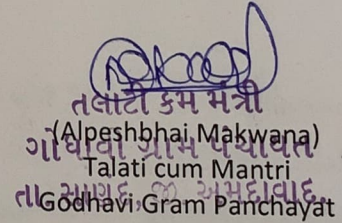 તલાટી કમ મંત્રી
(Alpeshbhai Makwana)
ગોધાવી ગ્રામ પંચાયત
Talati cum Mantri
તા. સાણંદ, જી. અમદાવાદ.
Godhavi Gram Panchayat